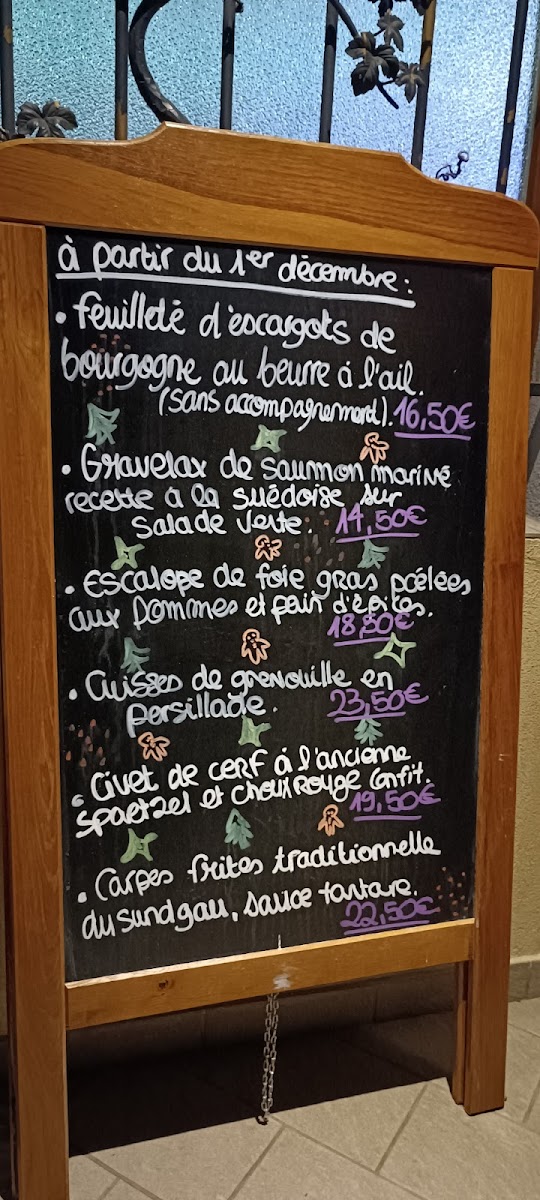 à partir du 1er décembre :
• feuilleté d'éscargots de
bourgogne au beurre à l'ail.
(sans accompagnement). 16,50€
• Gravelax de saumon mariné
recette à la suédoise sur
salade verte. 14,50€
• Escalope de foie gras poélées
aux pommes et pain d'épices.
18,50€
• Cuisses de grenouille en
persillade. 23,50€
• Civet de cerf à l'ancienne
spaetzel et choux rouge confit.
19,50€
• Carpes frites traditionnelle
du sundgau, sauce tartare.
22,50€